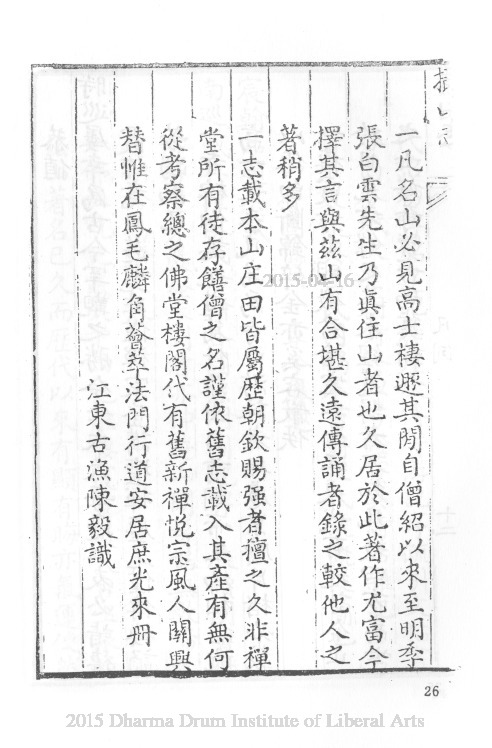 一凡名山必見高士棲遯其間自僧紹以來至明季
張白雲先生乃眞住山者也久居於此著作尤富今
擇其言與茲山有合堪久遠傳誦者錄之較他人之
著稍多
一志載本山庄田皆屬歷朝欽賜强者擅之久非禪
堂所有徒存饍僧之名謹依舊志載入其產有無何
從考察總之佛堂樓閣代有舊新禪悅宗風人關興
替惟在鳳毛麟角薈萃法門行道安居庶光來冊
江東古漁陳毅識
2015-04-16
26
2015 Dharma Drum Institute of Liberal Arts